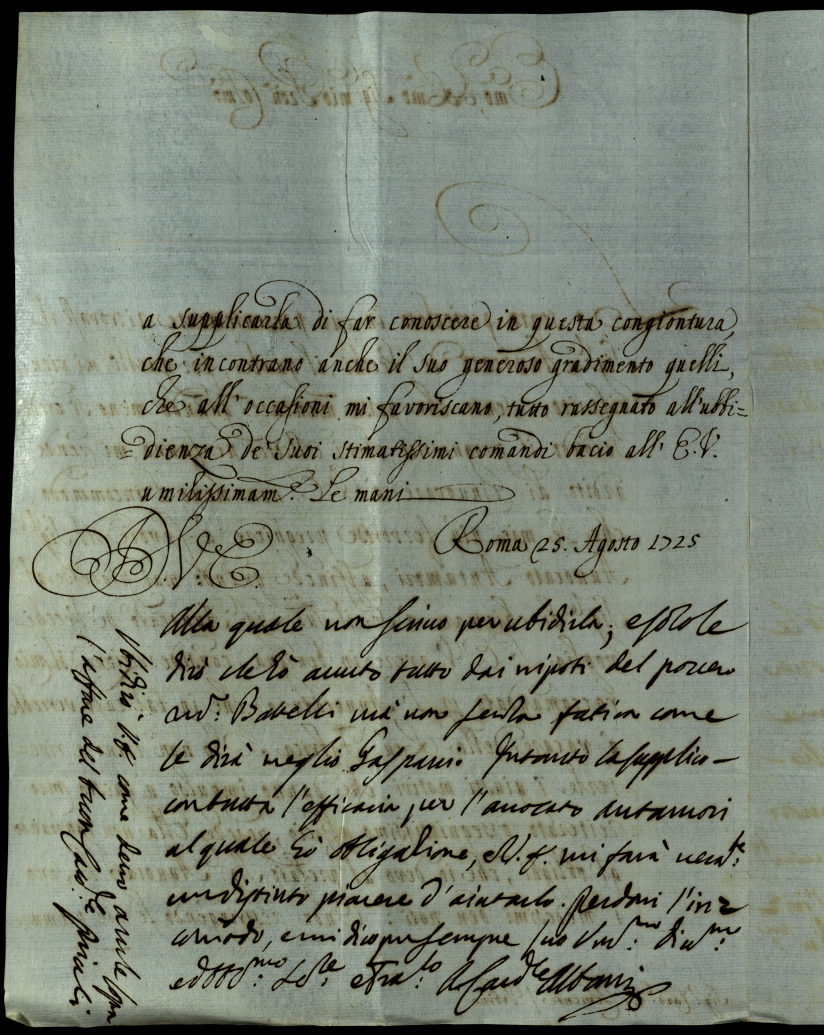 a supplicarla di far conoscere in questa congiontura,
che incontrano anche il suo generoso gradimento quelli,
che all'occasioni mi favoriscano, tutto rassegnato all'ubbi=
=dienza de suoi stimatissimi comandi bacio all' E.V.
umilissimam.e le mani
Roma 25. Agosto 1725
D. V. E.
Alla quale non scrivo per ubidirla, e solo le
dirò che hò avuto tutto dai nipoti del povero
Batelli mà non senza fatica come
le dirà meglio Gasparri. Intanto la supplico
con tutta l'efficacia per l'avocato Antamori
al quale hò obligazione, e V. E. mi farà
un distinto piacere d'aiutarlo. Perdoni l'in=
comodo, e mi dico per sempre suo
ed A Card.le Albani
Ubidirò V.E. come devo
l'affare del buon Card.le